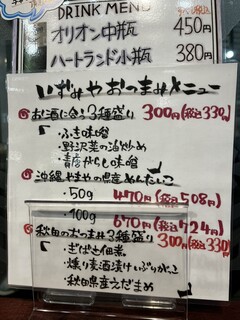 DRINK MENU
オリオン中瓶 450円
ハートランド小瓶 380円
いずみやおつまみメニュー
お酒に合う3種盛り 300円(税込330円)
・ふき味噌
・野沢菜の油炒め
・青唐がらし味噌
沖縄やまやの県産めんたいこ
・50g 470円(税込508円)
・100g 670円(税込724円)
秋田のおつまみ3種盛り 300円(税込330円)
・ぎばさ佃煮
・燻り麦酒漬けいぶりがっこ
・秋田県産えだまめ